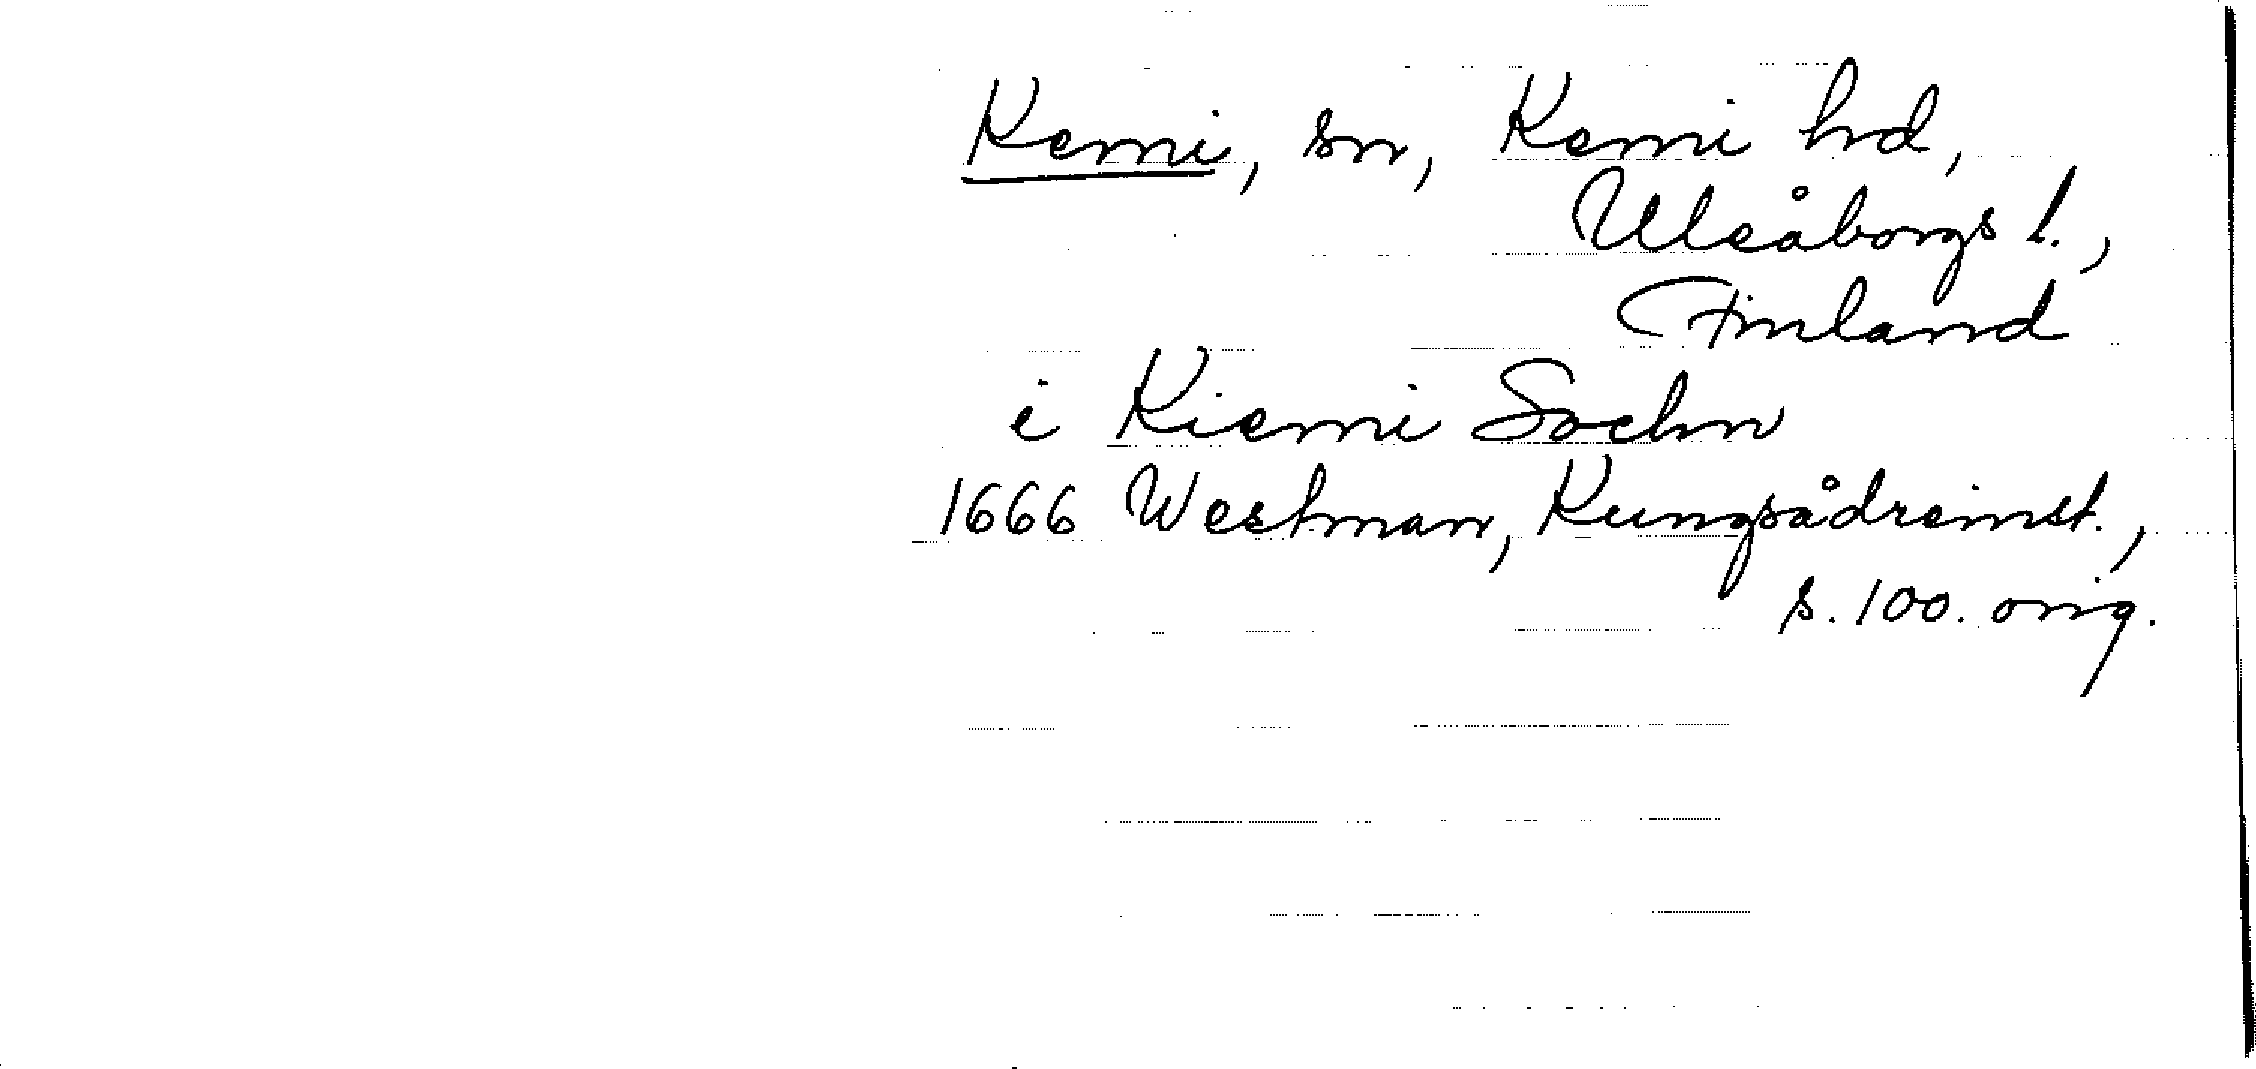 Kemi, sn, Kemi hd,
Uleåborgs l.,
Finland
i Kiemi Sochn
1666 Westman, Kungsådreinst.,
s. 100. orig.